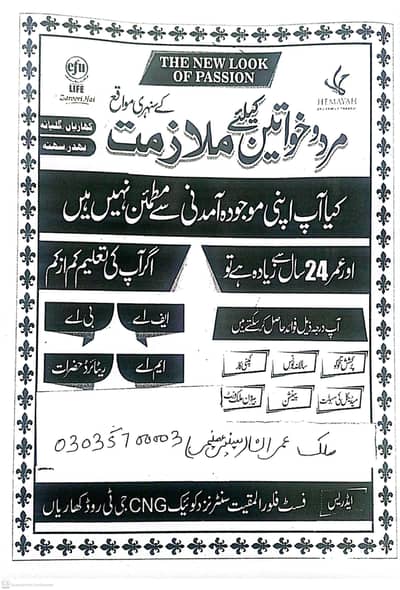 THE NEW LOOK
OF PASSION
efu
LIFE
Zaroori Hai
HEMAYAH
کھاریاں، گلیانہ
کے سنہری مواقع
مرد و خواتین کیلئے ملازمت
کیا آپ اپنی موجودہ آمدنی سے مطمئن نہیں ہیں
اور عمر 24 سال سے زیادہ ہے تو
اگر آپ کی تعلیم کم از کم
ایف اے
بی اے
ایم اے
ریٹائرڈ حضرات
آپ درجہ ذیل فوائد حاصل کر سکتے ہیں
پرکشش تنخواہ
سالانہ بونس
کمپنی کار
میڈیکل کی سہولت
پینشن
بیرون ملک ٹرپ
ملک عمران انار سینئر منیجر 03035700003
ایڈریس
فسٹ فلور المقیت سنٹر نزد کونیک CNG جی ٹی روڈ کھاریاں